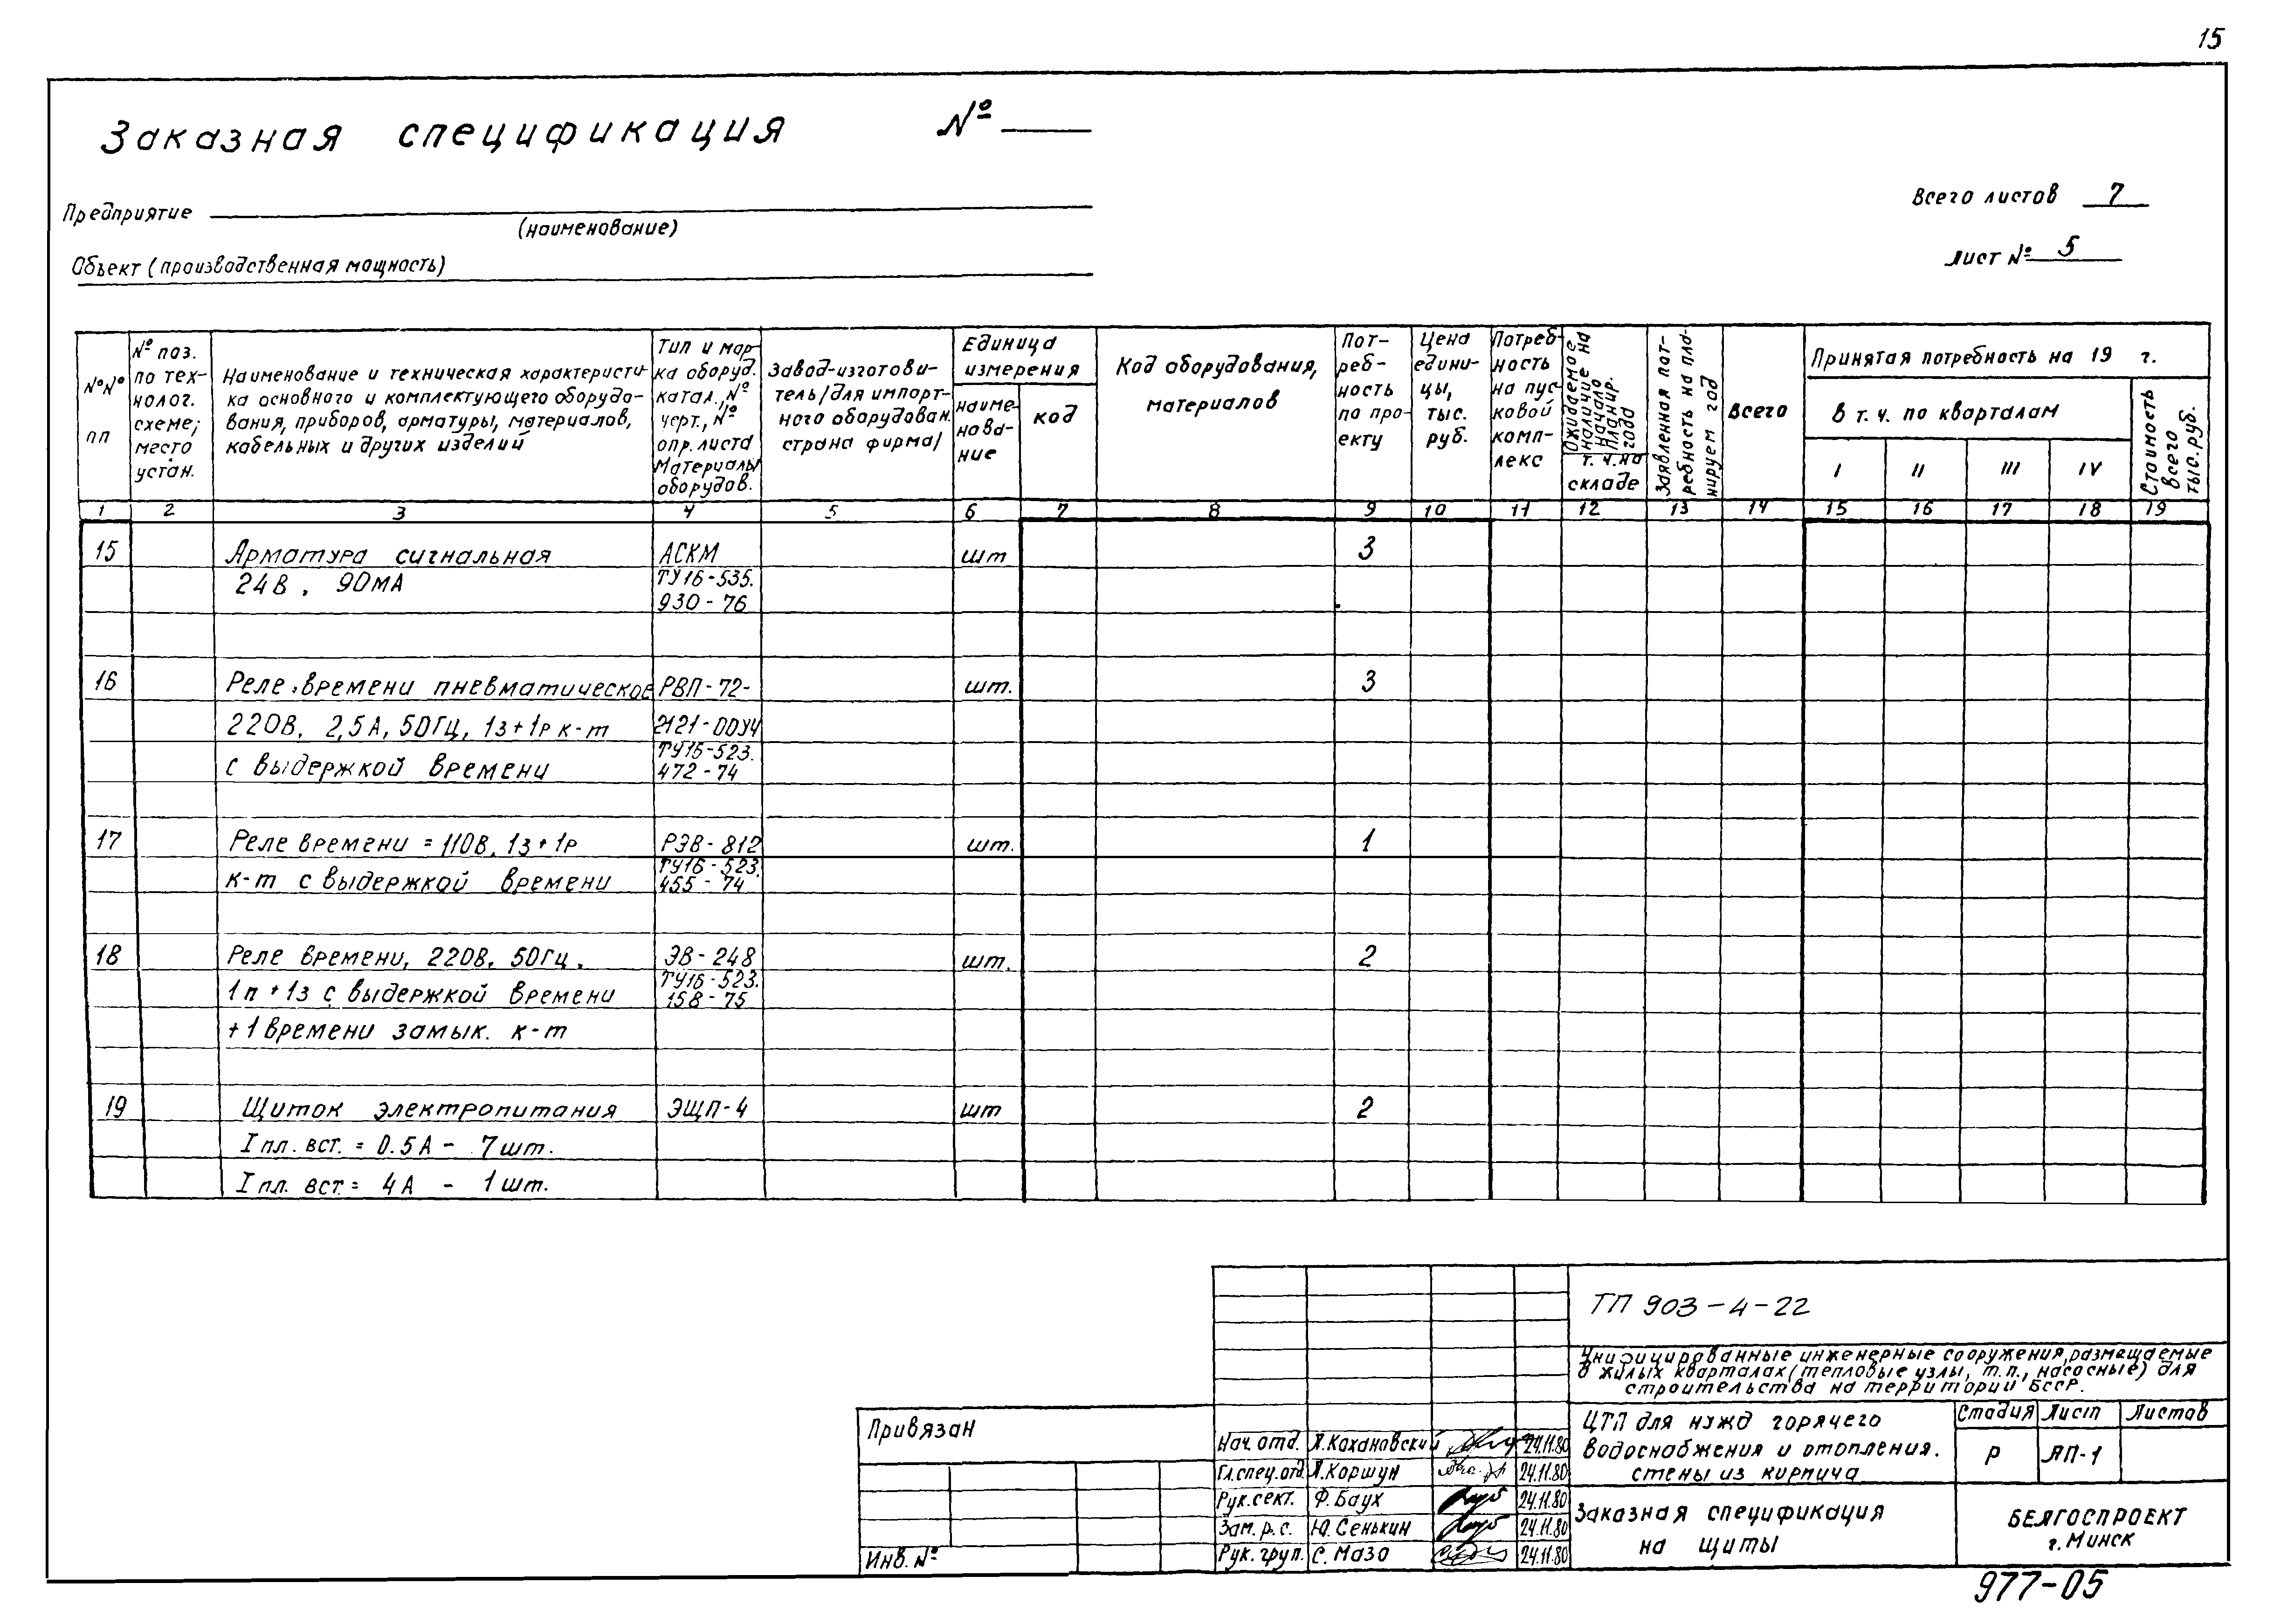 15
Заказная спецификация №
Предприятие
(наименование)
Всего листов 7
Объект (производственная мощность)
Лист № 5
№№ пп
№ поз. по тех-нолог. схеме; место устан.
Наименование и техническая характеристи-
ка основного и комплектующего оборудо-
вания, приборов, арматуры, материалов,
кабельных и других изделий
Тип и мар-
ка оборуд.
катал., №
черт., №
опр. листа
Материалы
оборудов.
Завод-изготови-
тель/для импорт-
ного оборудован.
страна фирма/
Единица
измерения
наиме-
нова-
ние
код
Код оборудования,
материалов
Пот-
реб-
ность
по про-
екту
Цена
едини-
цы,
тыс.
руб.
Потреб-
ность
на пус-
ковой
комп-
лекс
Ожидаемое
наличие на
начало
планир.
года
т. ч. на
складе
Заявленная пот-
ребность на пла-
нируем год
Всего
Принятая потребность на 19 г.
в т. ч. по кварталам
I II III IV
Стоимость
всего
тыс. руб.
1 2 3 4 5 6 7 8 9 10 11 12 13 14 15 16 17 18 19
15 Арматура сигнальная АСКМ шт 3
24В, 90мА ТУ16-535.
930-76
16 Реле времени пневматическое РВП-72- шт. 3
220В, 2,5А, 50Гц, 1з+1р к-т 2121-00У4
ТУ16-523.
с выдержкой времени 472-74
17 Реле времени =110В, 1з+1р РЭВ-812 шт. 1
ТУ16-523.
к-т с выдержкой времени 455-74
18 Реле времени, 220В, 50Гц, ЭВ-248 шт. 2
ТУ16-523.
1п+1з с выдержкой времени 158-75
+1 времени замык. к-т
19 Щиток электропитания ЭЩП-4 шт 2
I пл. вст. = 0.5А - 7 шт.
I пл. вст = 4А - 1 шт.
ТП 903-4-22
Унифицированные инженерные сооружения, размещаемые
в жилых кварталах (тепловые узлы, т.п., насосные) для
строительства на территории БССР.
Привязан
Инв. №
Нач. отд. Л. Кохановский 24.11.80
Гл. спец. отд. Л. Коршун 24.11.80
Рук. сект. Ф. Баух 24.11.80
Зам. р. с. Ю. Сенькин 24.11.80
Рук. груп. С. Мазо 24.11.80
ЦТП для нужд горячего
водоснабжения и отопления.
стены из кирпича
Стадия Лист Листов
Р АП-1
Заказная спецификация
на щиты
БЕЛГОСПРОЕКТ
г. Минск
977-05